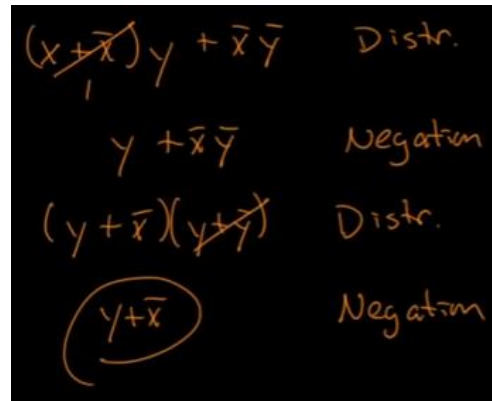 (x + x̄)y + x̄ȳ Distr.
1
y + x̄ȳ Negation
(y + x̄)(y + ȳ) Distr.
y + x̄ Negation